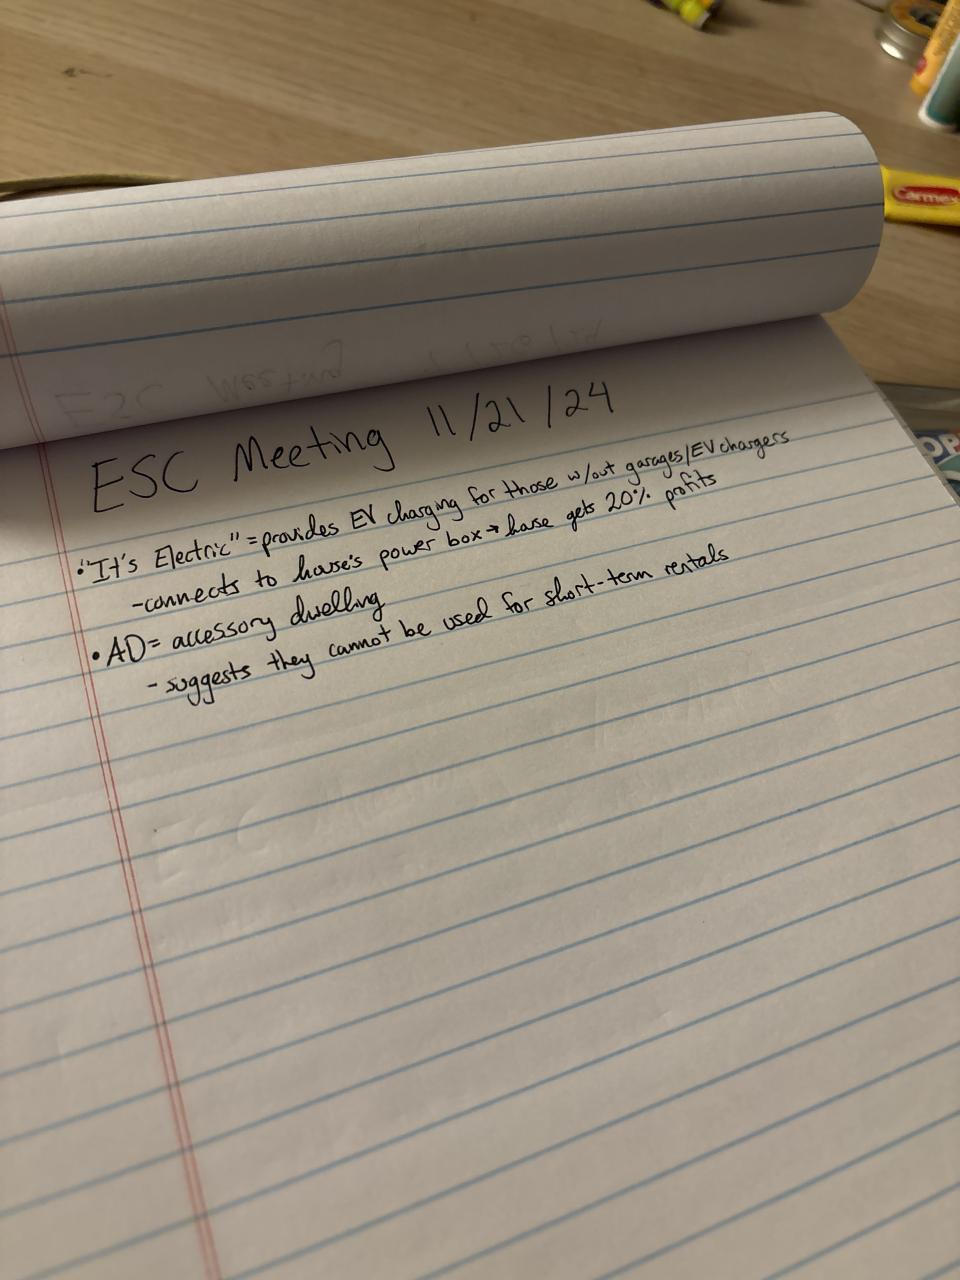 ESC Meeting 11/21/24
• "It's Electric" = provides EV charging for those w/out garages/EV chargers
- connects to house's power box → house gets 20% profits
• AD = accessory dwelling
- suggests they cannot be used for short-term rentals
Carmex